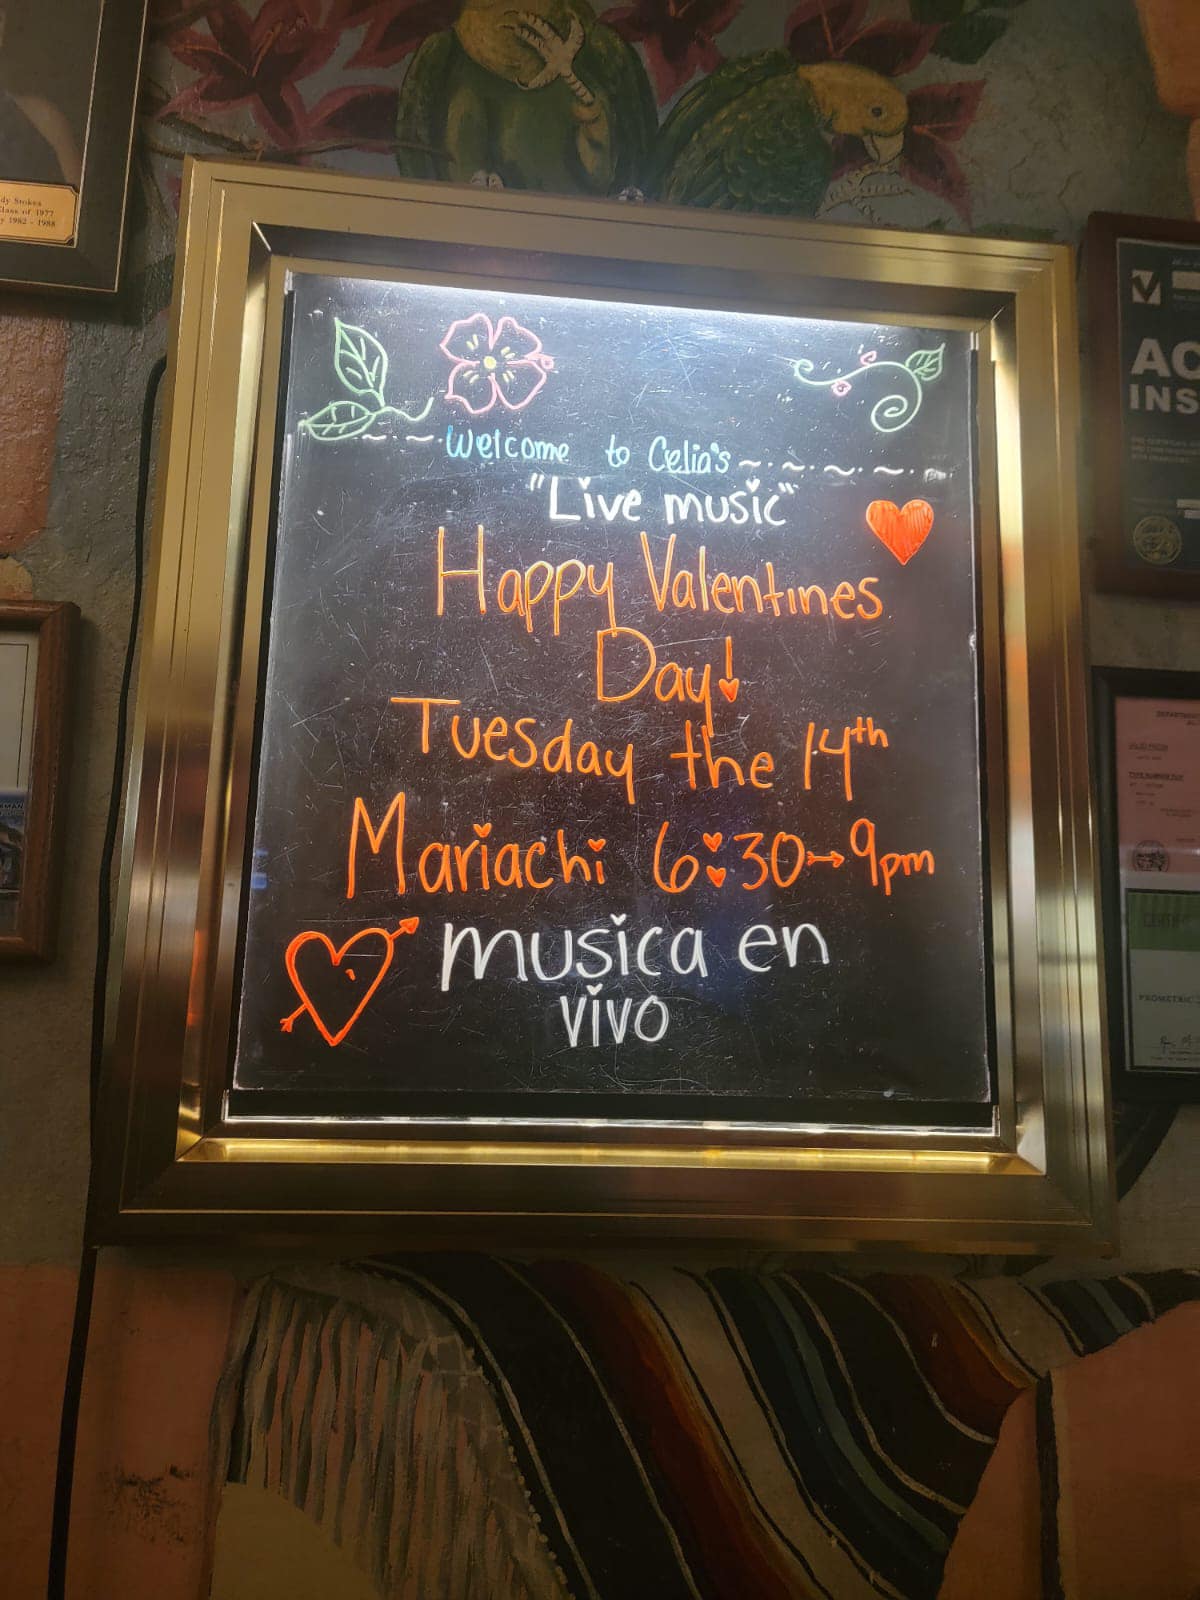 Welcome to Celia's
"Live music"
Happy Valentines
Day!
Tuesday the 14th
Mariachi 6:30→9pm
musica en
vivo
dy Stokes
Class of 1977
y 1982 - 1988
AC
INS
DEPARTMEN
PROMETRIC